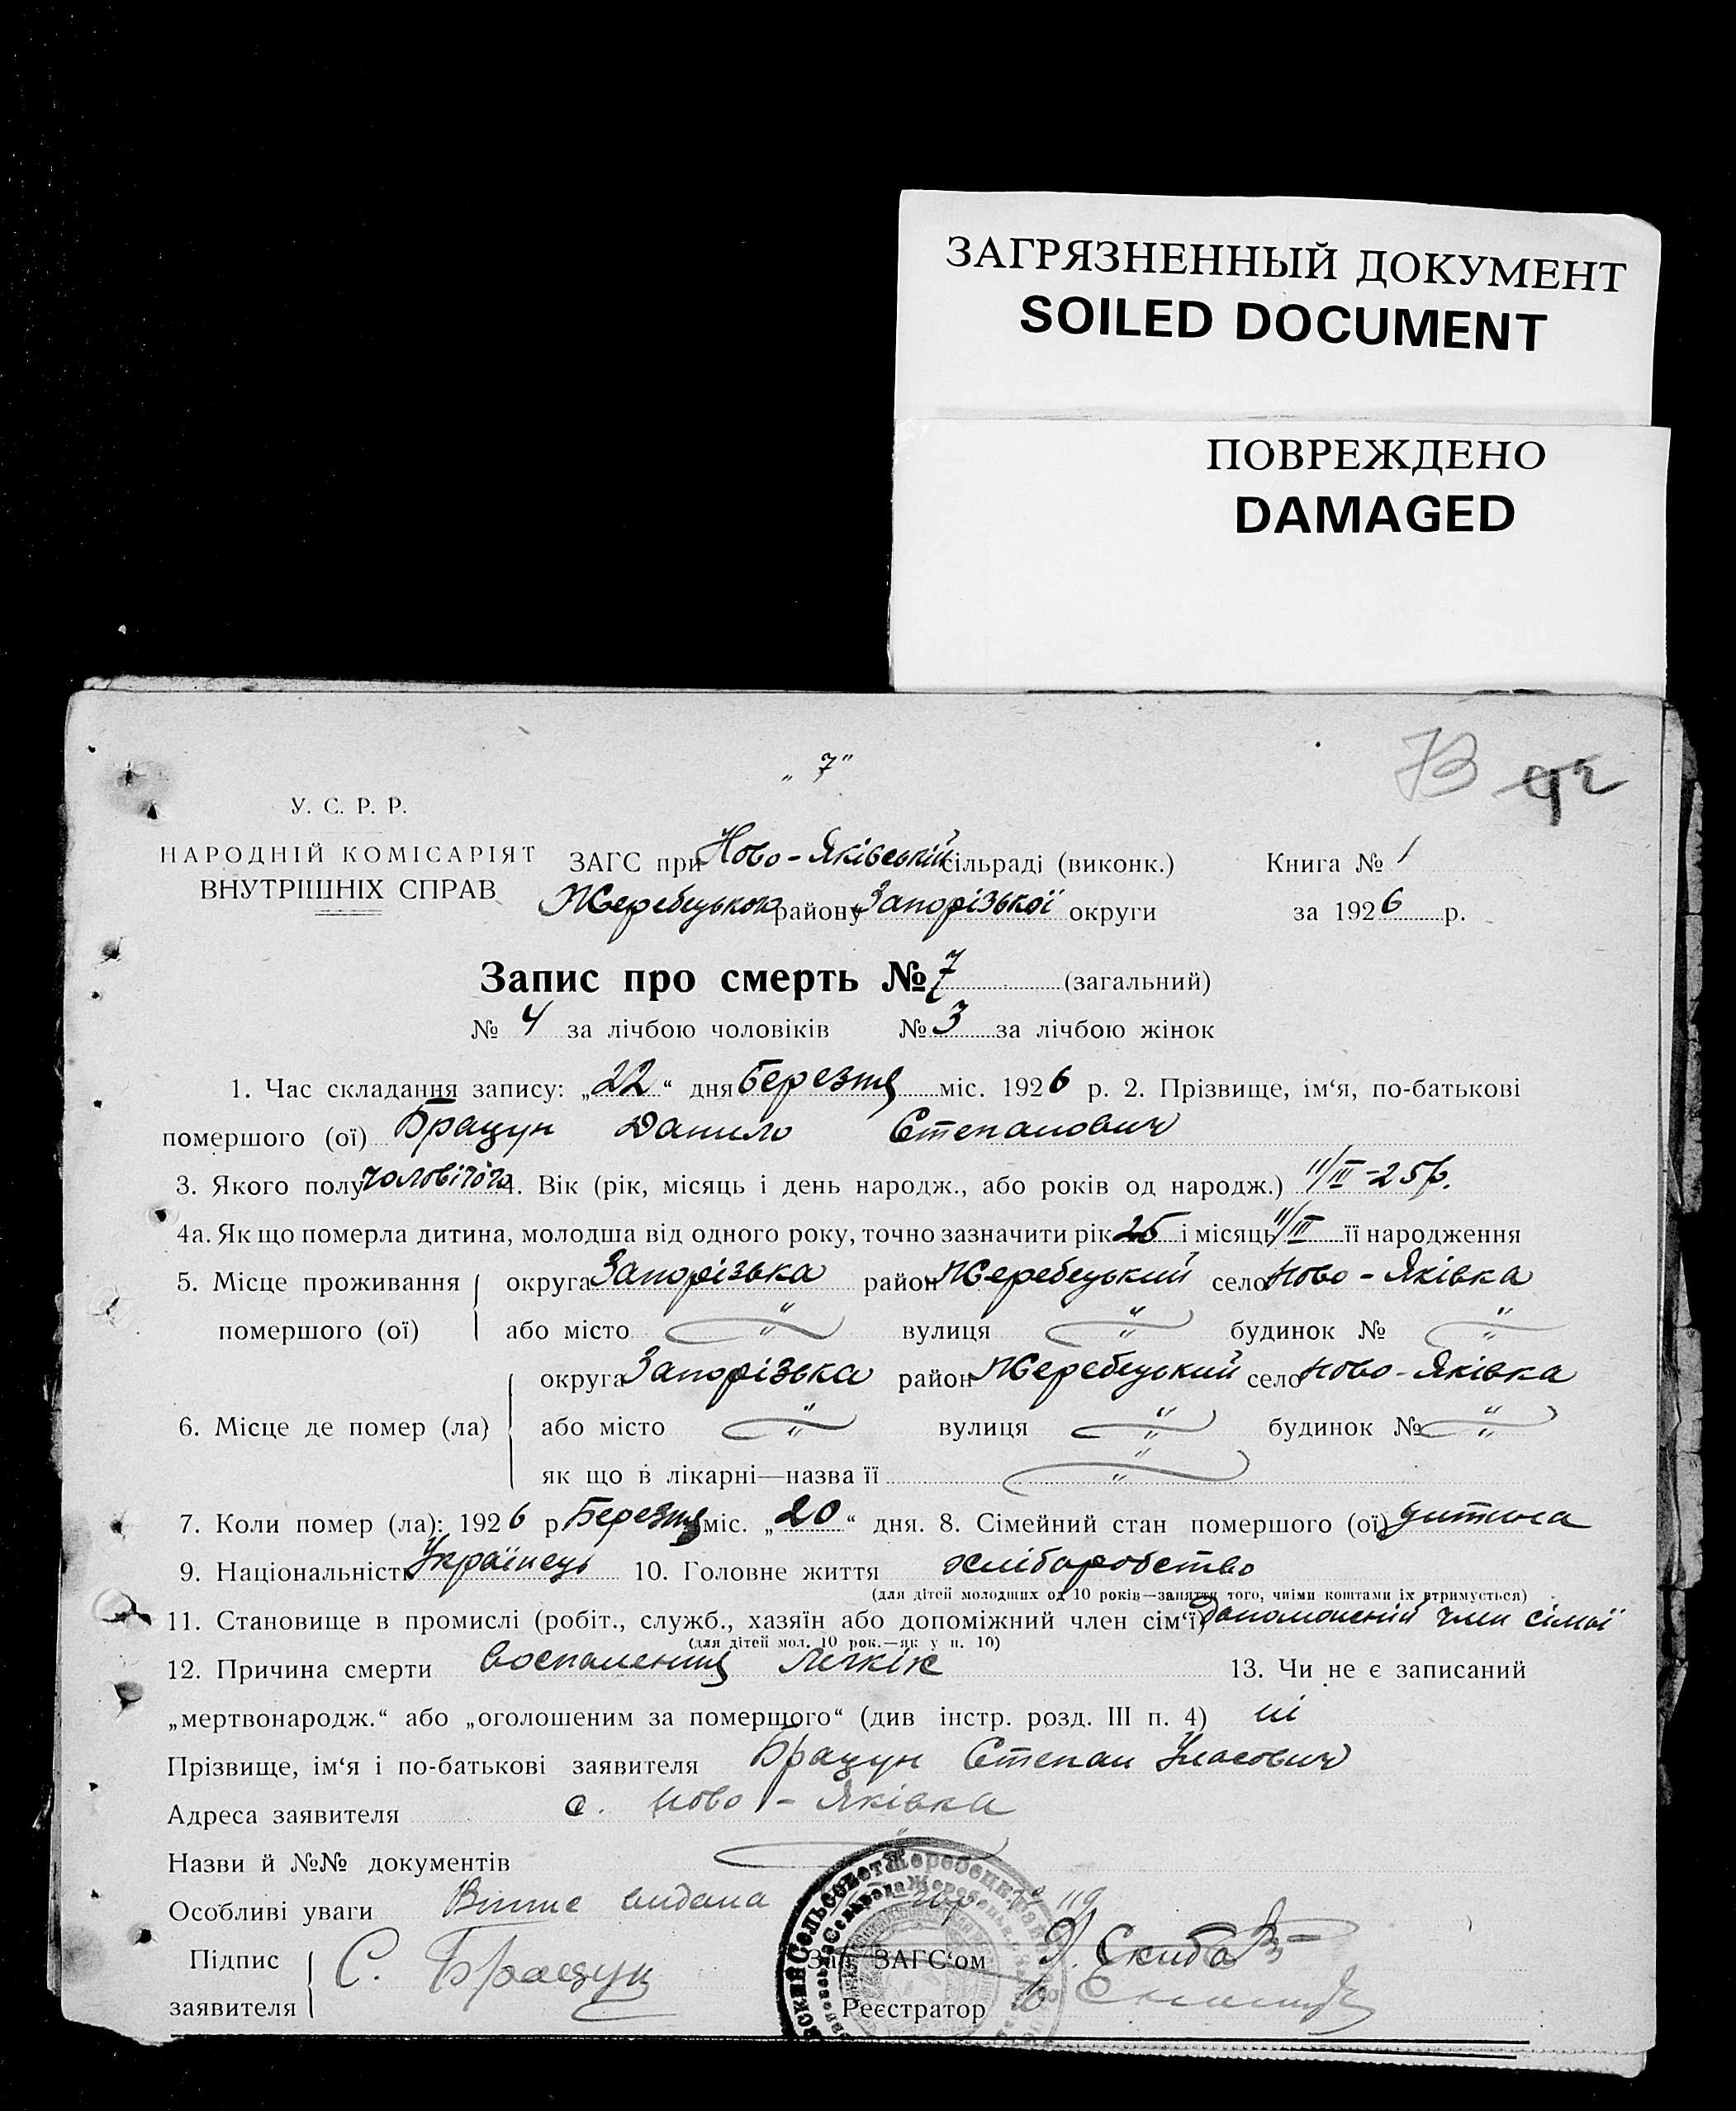 ЗАГРЯЗНЕННЫЙ ДОКУМЕНТ
SOILED DOCUMENT
ПОВРЕЖДЕНО
DAMAGED
„ 7 “
73 92
У. С. Р. Р.
НАРОДНІЙ КОМІСАРІЯТ
ВНУТРІШНІХ СПРАВ
ЗАГС при Ново-Яківській сільраді (виконк.) Книга № 1
Жеребецького району Запорізької округи за 1926 р.
Запис про смерть № 7 (загальний)
№ 4 за лічбою чоловіків № 3 за лічбою жінок
1. Час складання запису: „22“ дня березня міс. 1926 р. 2. Прізвище, ім‘я, по-батькові
помершого (ої) Брацун Данило Степанович
3. Якого полу чоловічого 4. Вік (рік, місяць і день народж., або років од народж.) 11/III-25р.
4а. Як що померла дитина, молодша від одного року, точно зазначити рік 25 і місяць 11/III її народження
5. Місце проживання округа Запорізька район Жеребецький село Ново-Яківка
помершого (ої) або місто „ вулиця „ будинок № „
округа Запорізька район Жеребецький село Ново-Яківка
6. Місце де помер (ла) або місто „ вулиця „ будинок № „
як що в лікарні—назва її „
7. Коли помер (ла): 1926 р Березня міс. „20“ дня. 8. Сімейний стан помершого (ої) дитина
9. Національність Українець 10. Головне життя хліборобство
(для дітей молодших од 10 років—заняття того, чиїми коштами їх втримується)
11. Становище в промислі (робіт., служб., хазяїн або допоміжний член сім‘ї) допоможений член сімьї
(для дітей мол. 10 рок.—як у п. 10)
12. Причина смерти воспаления легкіх 13. Чи не є записаний
„мертвонародж.“ або „оголошеним за померщого“ (див інстр. розд. III п. 4) ні
Прізвище, ім‘я і по-батькові заявителя Брацун Степан Уласович
Адреса заявителя с. Ново-Яківка
Назви й №№ документів
Особливі уваги видана № 119
Підпис С. Брацун Зав ЗАГС‘ом Скиба
заявителя Реєстратор